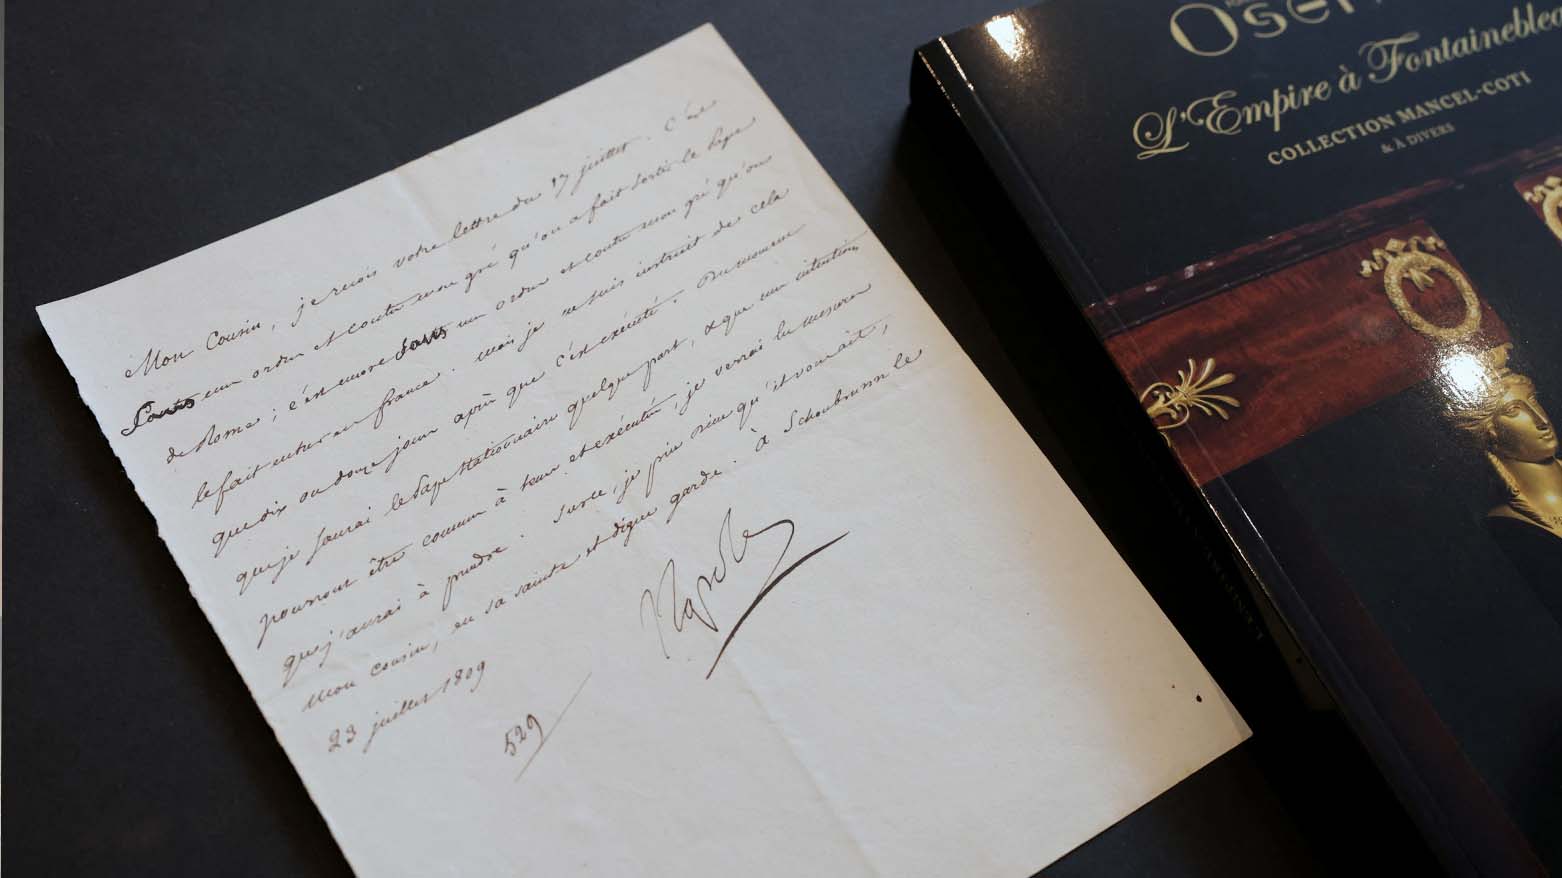 Mon Cousin, je reçois votre lettre du 17 juillet. C'est
sans mon ordre et contre mon gré qu'on a fait sortir le Pape
de Rome ; c'est encore sans mon ordre et contre mon gré qu'on
le fait entrer en france. mais je ne suis instruit de cela
que dix ou douze jours après que c'est exécuté. Du moment
que je saurai le Pape stationnaire quelque part, & que mes intentions
pourront être connues à tems et exécutées, je verrai les mesures
que j'aurai à prendre. Surce, je prie Dieu qu'il vous ait,
Mon cousin, en sa sainte et digne garde. à Schonbrunn le
23 juillet 1809
529
Osen
L'Empire à Fontaineblea
COLLECTION MANCEL-COTI
& À DIVERS